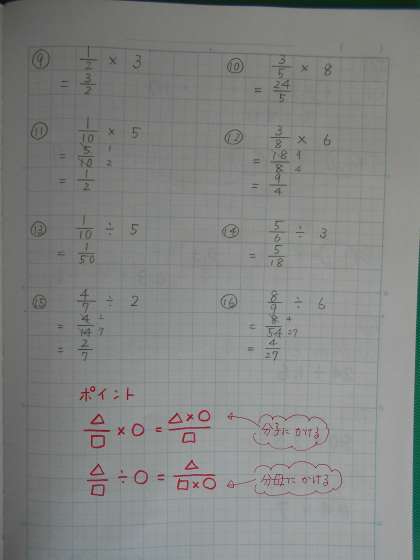 ⑨ 1/2 × 3
= 3/2
⑩ 3/5 × 8
= 24/5
⑪ 1/10 × 5
= 5/10 1 2
= 1/2
⑫ 3/8 × 6
= 18/8 9 4
= 9/4
⑬ 1/10 ÷ 5
= 1/50
⑭ 5/6 ÷ 3
= 5/18
⑮ 4/7 ÷ 2
= 4/14 2 7
= 2/7
⑯ 8/9 ÷ 6
= 8/54 4 27
= 4/27
ポイント
△/□ × ○ = △×○/□ 分子にかける
△/□ ÷ ○ = △/□×○ 分母にかける